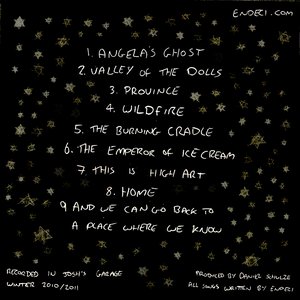 ENDERI.COM
1. ANGELA'S GHOST
2. VALLEY OF THE DOLLS
3. PROVINCE
4. WILDFIRE
5. THE BURNING CRADLE
6. THE EMPEROR OF ICE CREAM
7. THIS IS HIGH ART
8. HOME
9 AND WE CAN GO BACK TO
A PLACE WHERE WE KNOW
RECORDED IN JOSH'S GARAGE
WINTER 2010/2011
PRODUCED BY DANIEL SCHULZE
ALL SONGS WRITTEN BY ENDERI